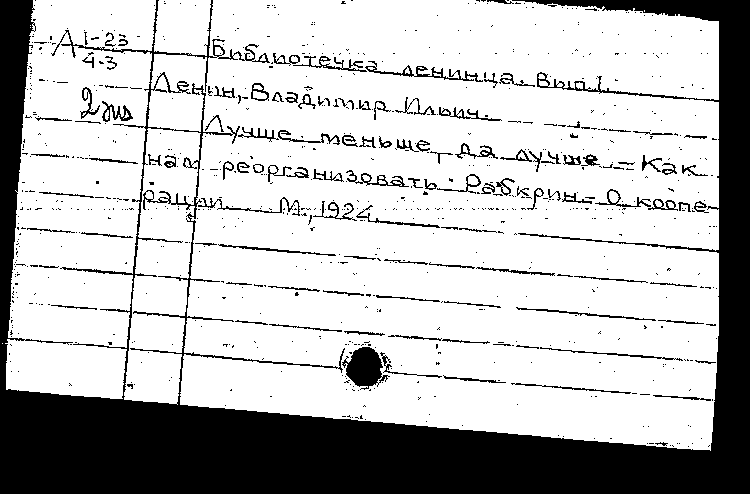 А 1-23 Библиотечка ленинца. Вып.1.
4-3
Ленин, Владимир Ильич.
2 экз
Лучше меньше, да лучше. - Как
нам реорганизовать Рабкрин. - О коопе-
рации. М., 1924.